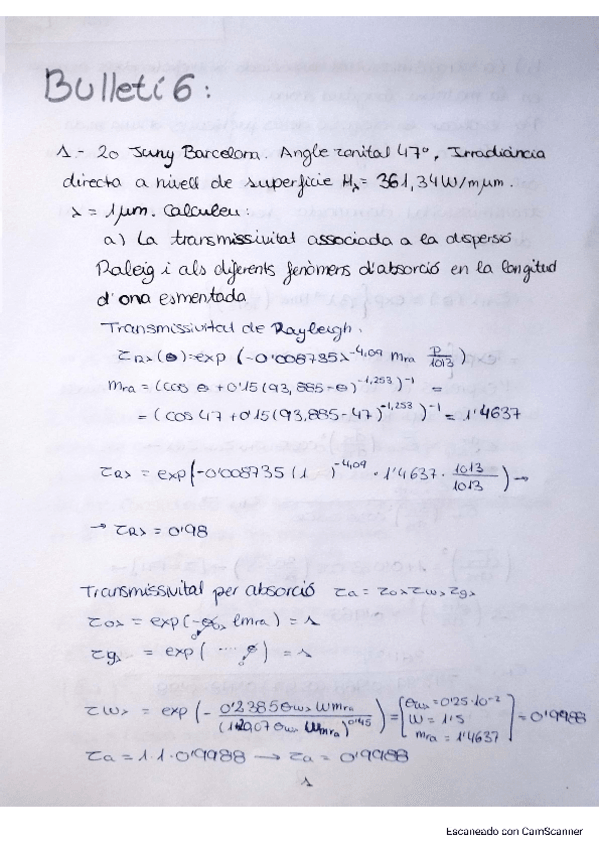 Bulletí 6:
1.- 20 Juny Barcelona. Angle zenital 47º, Irradiància
directa a nivell de superfície Hλ = 361,34 W/m μm.
λ = 1 μm. Calculeu:
a) La transmissivitat associada a la dispersó
Raleig i als diferents fenòmens d'absorció en la longitud
d'ona esmentada
Transmissivitat de Rayleigh.
τRλ(θ)=exp (-0'008735λ^-4,09 mra P/1013)
mra = (cos θ + 0'15(93,885-θ)^-1,253)^-1 =
= (cos 47 + 0'15(93,885-47)^-1,253)^-1 = 1'4637
τRλ = exp(-0'008735 (1 )^-4,09 · 1'4637 · 1013/1013) →
→ τRλ = 0'98
Transmissivitat per absorció τa = τoλ τwλ τgλ
τoλ = exp(-αoλ lmra) = 1
0
τgλ = exp( ..... 0) = 1
τwλ = exp(- 0'2385 αwλ w mra / (1+20,07 αwλ w mra)^0'45) = [αwλ = 0'25·10^-2 w = 1'5 mra = 1'4637] = 0'9988
τa = 1·1·0'9988 → τa = 0'9988
1
Escaneado con CamScanner